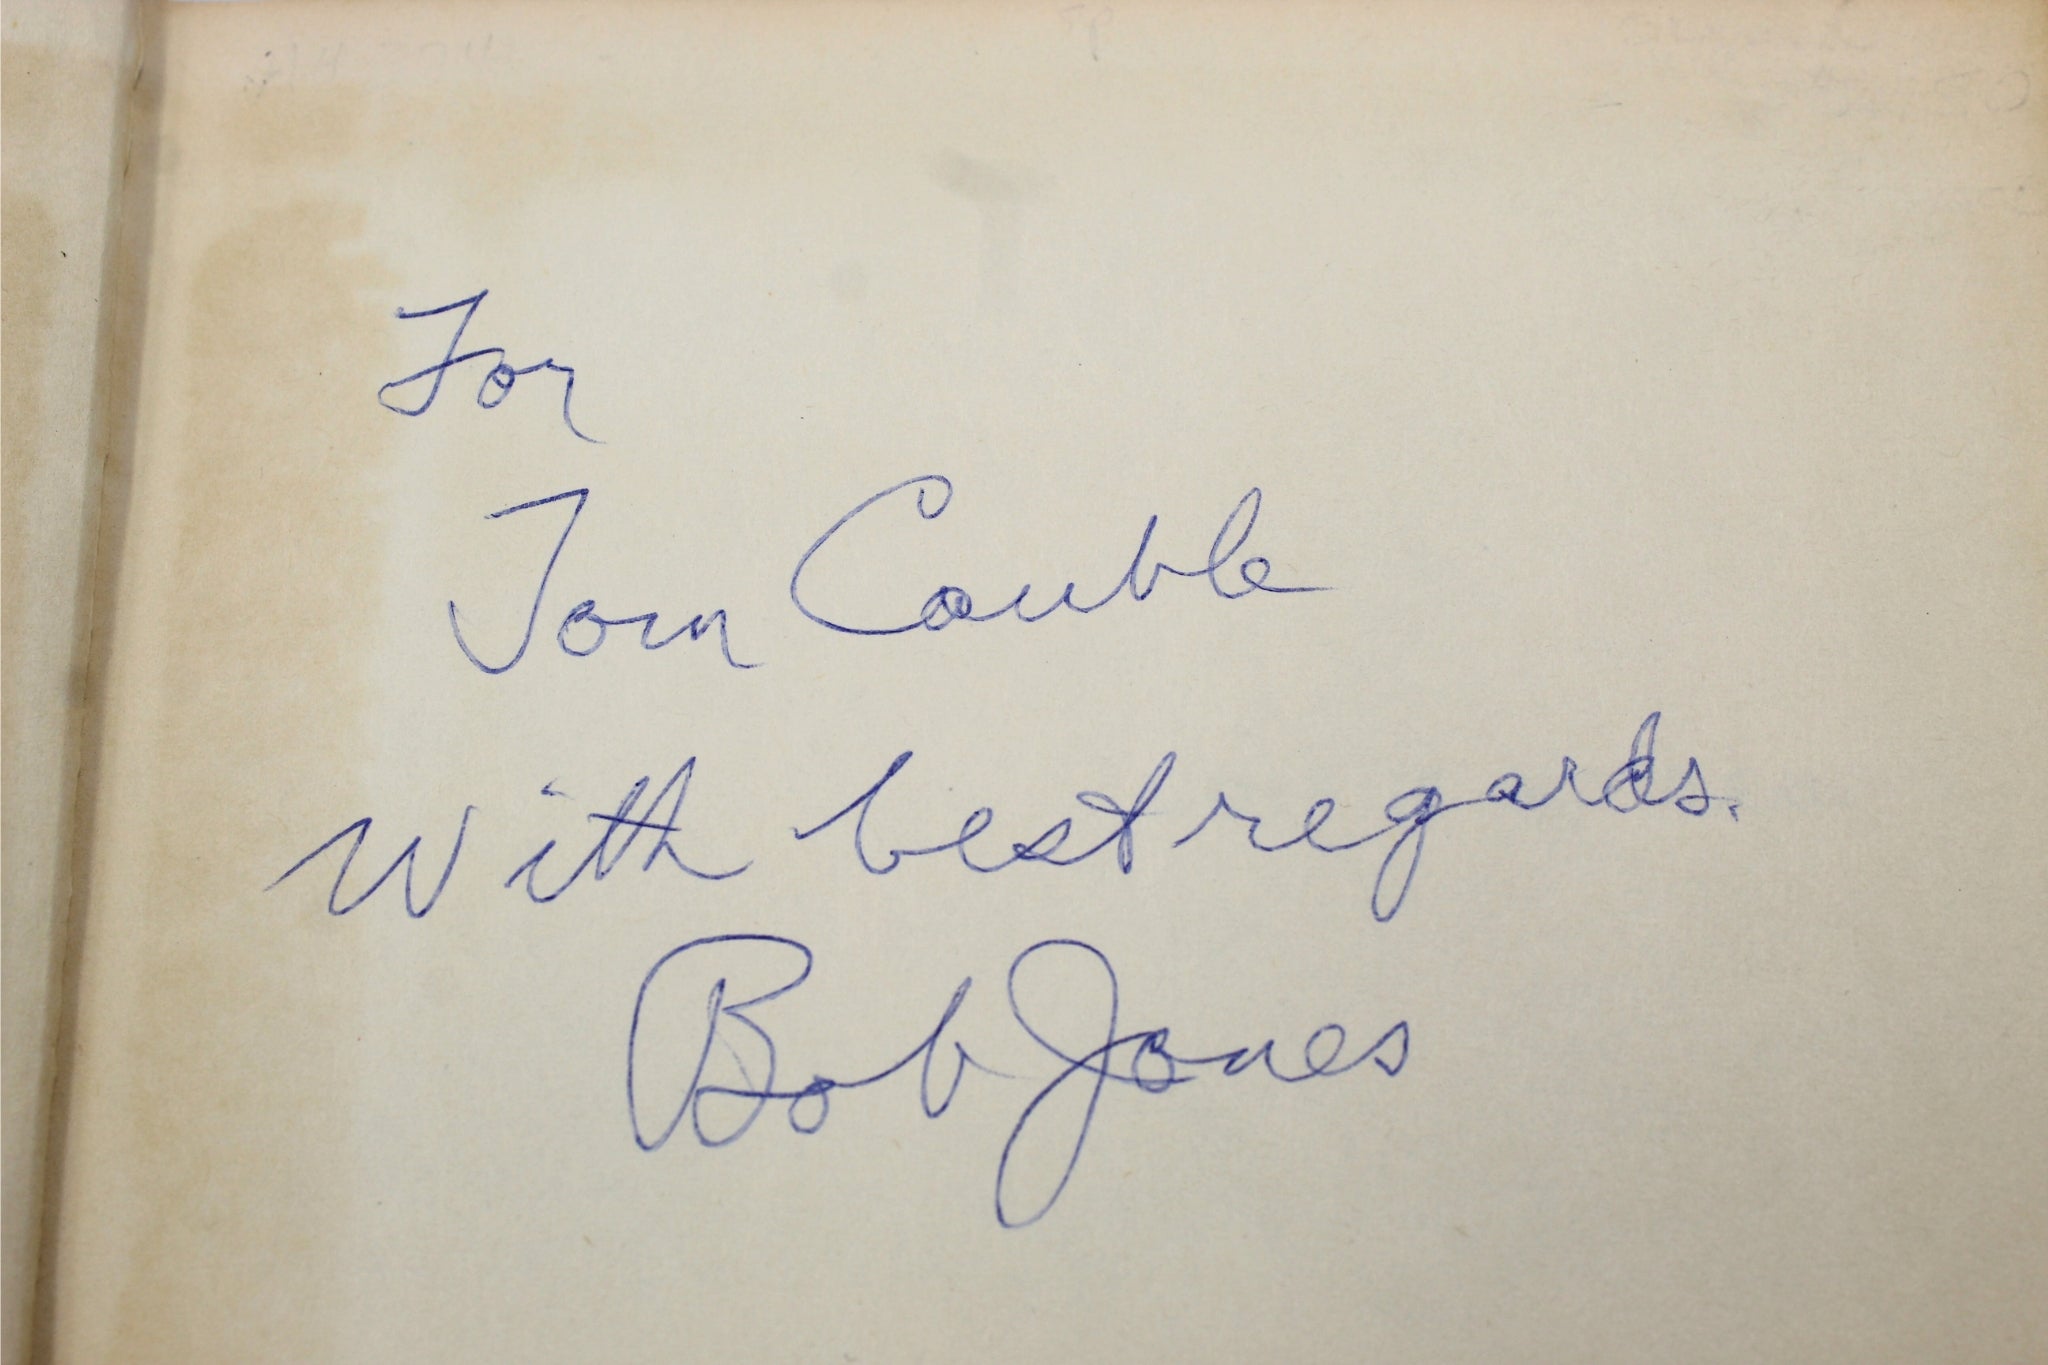 For
Tom Cauble
With best regards.
Bob Jones